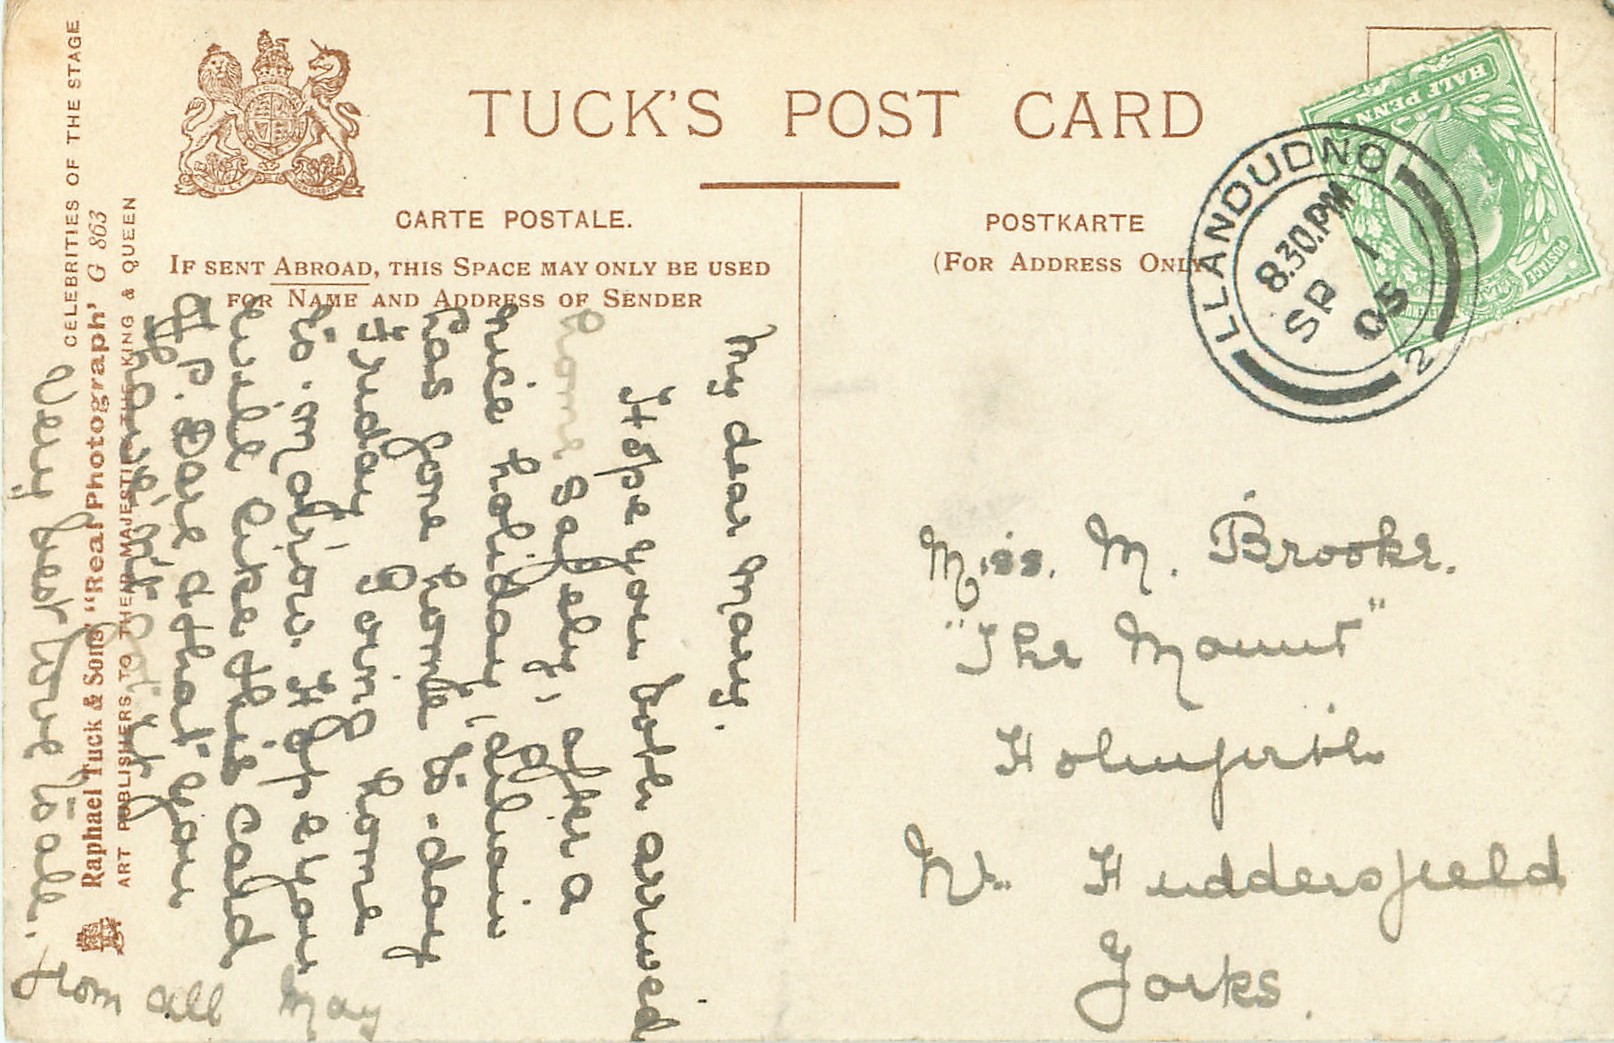 TUCK'S POST CARD
CARTE POSTALE.
POSTKARTE
IF SENT ABROAD, THIS SPACE MAY ONLY BE USED
FOR NAME AND ADDRESS OF SENDER
(FOR ADDRESS ONLY
HALF PENN
POSTAGE
LLANDUDNO
8.30.PM
SP 1
05
2
My dear Mary.
Hope you both arrived
home safely, after a
nice holiday,
has gone home to-day
Friday Going home
to-morrow. Hope you
will like this card
of P. Dare & that you
have not got it
Very best love to all.
From all May
Miss. M. Brooke.
"The Mount"
Holmfirth
Nr. Huddersfield
Yorks.
CELEBRITIES OF THE STAGE
Raphael Tuck & Sons' "Real Photograph' G 863
ART PUBLISHERS TO THEIR MAJESTIES THE KING & QUEEN